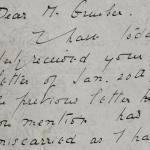 Dear Mr. Gruber.
I have today
duly received your
letter of Jan. 20th
The previous letter
you mention has
miscarried as I ha